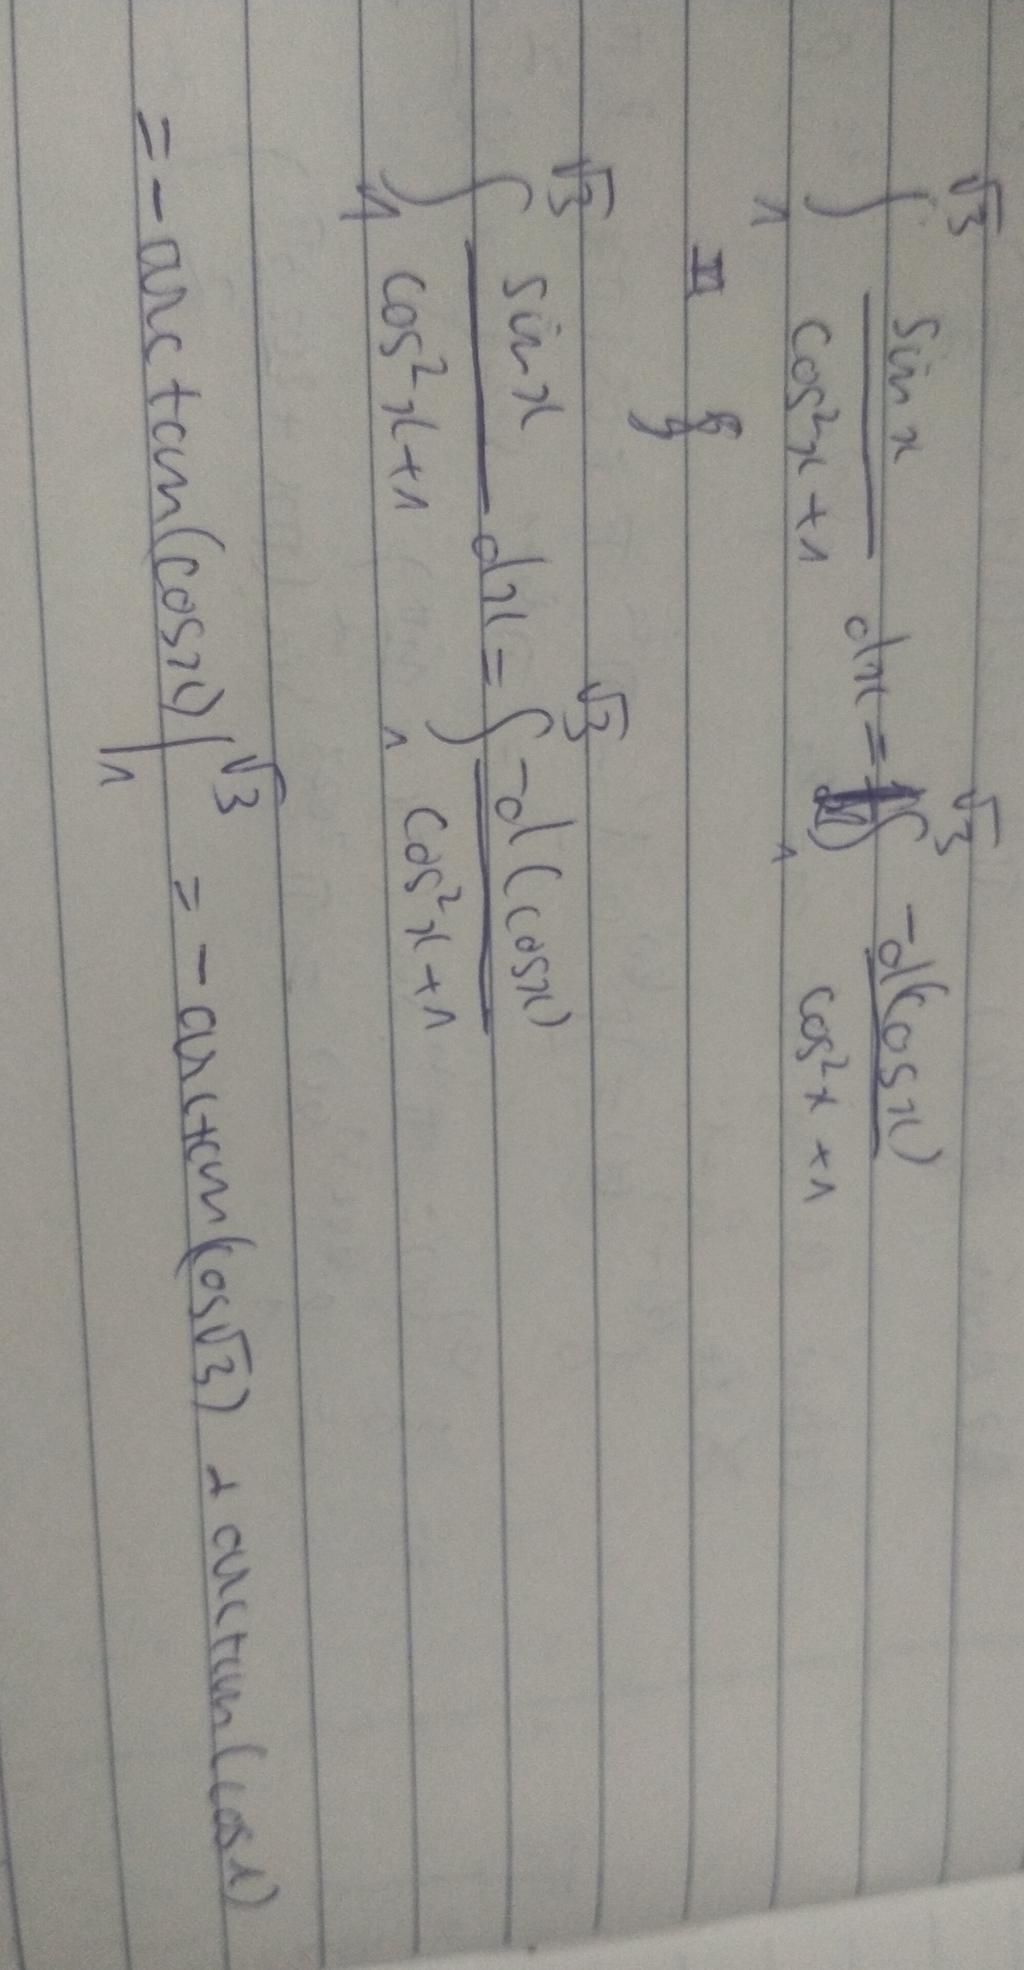 ∫_1^√3 sin x / (cos²x + 1) dx = ∫_1^√3 -d(cos x) / (cos²x + 1)
∫_1^√3 sin x / (cos²x + 1) dx = ∫_1^√3 -d(cos x) / (cos²x + 1)
= - arc tan(cos x) |_1^√3 = - arctan(cos √3) + arctan(cos 1)